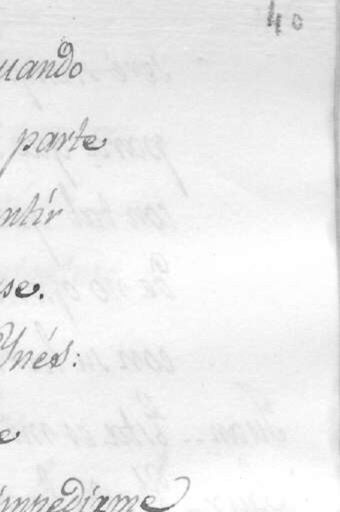 40
uando
parte
ntir
se.
Ynés:
e
impedirme